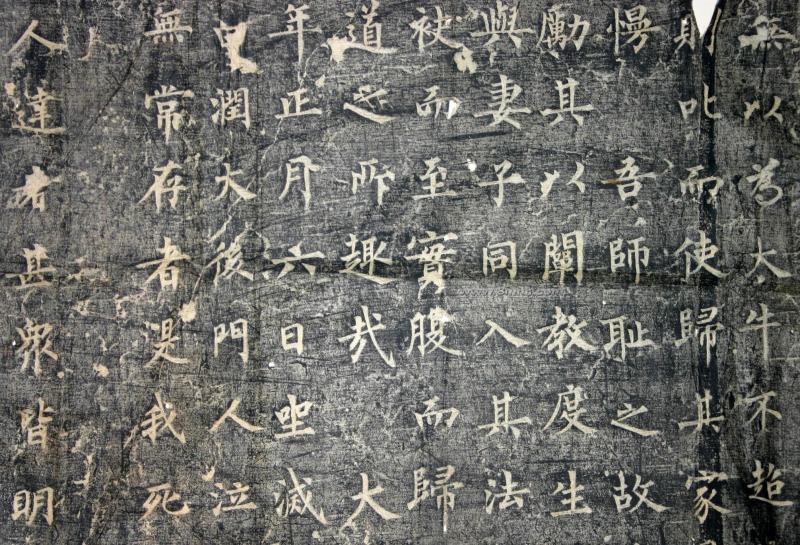 無以為大牛不超
則叱而使歸其家
慢 吾師耻之故
勵其以闡教度生
與妻子同入其法
袂而至實腹而歸
道之所趣哉 大
年正月六日坐滅
潤大後門人泣
無常存者是我死
人達者甚衆皆明